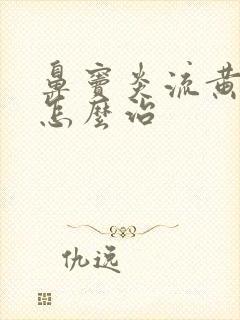 鼻窦炎流黄
怎麼治
仇远